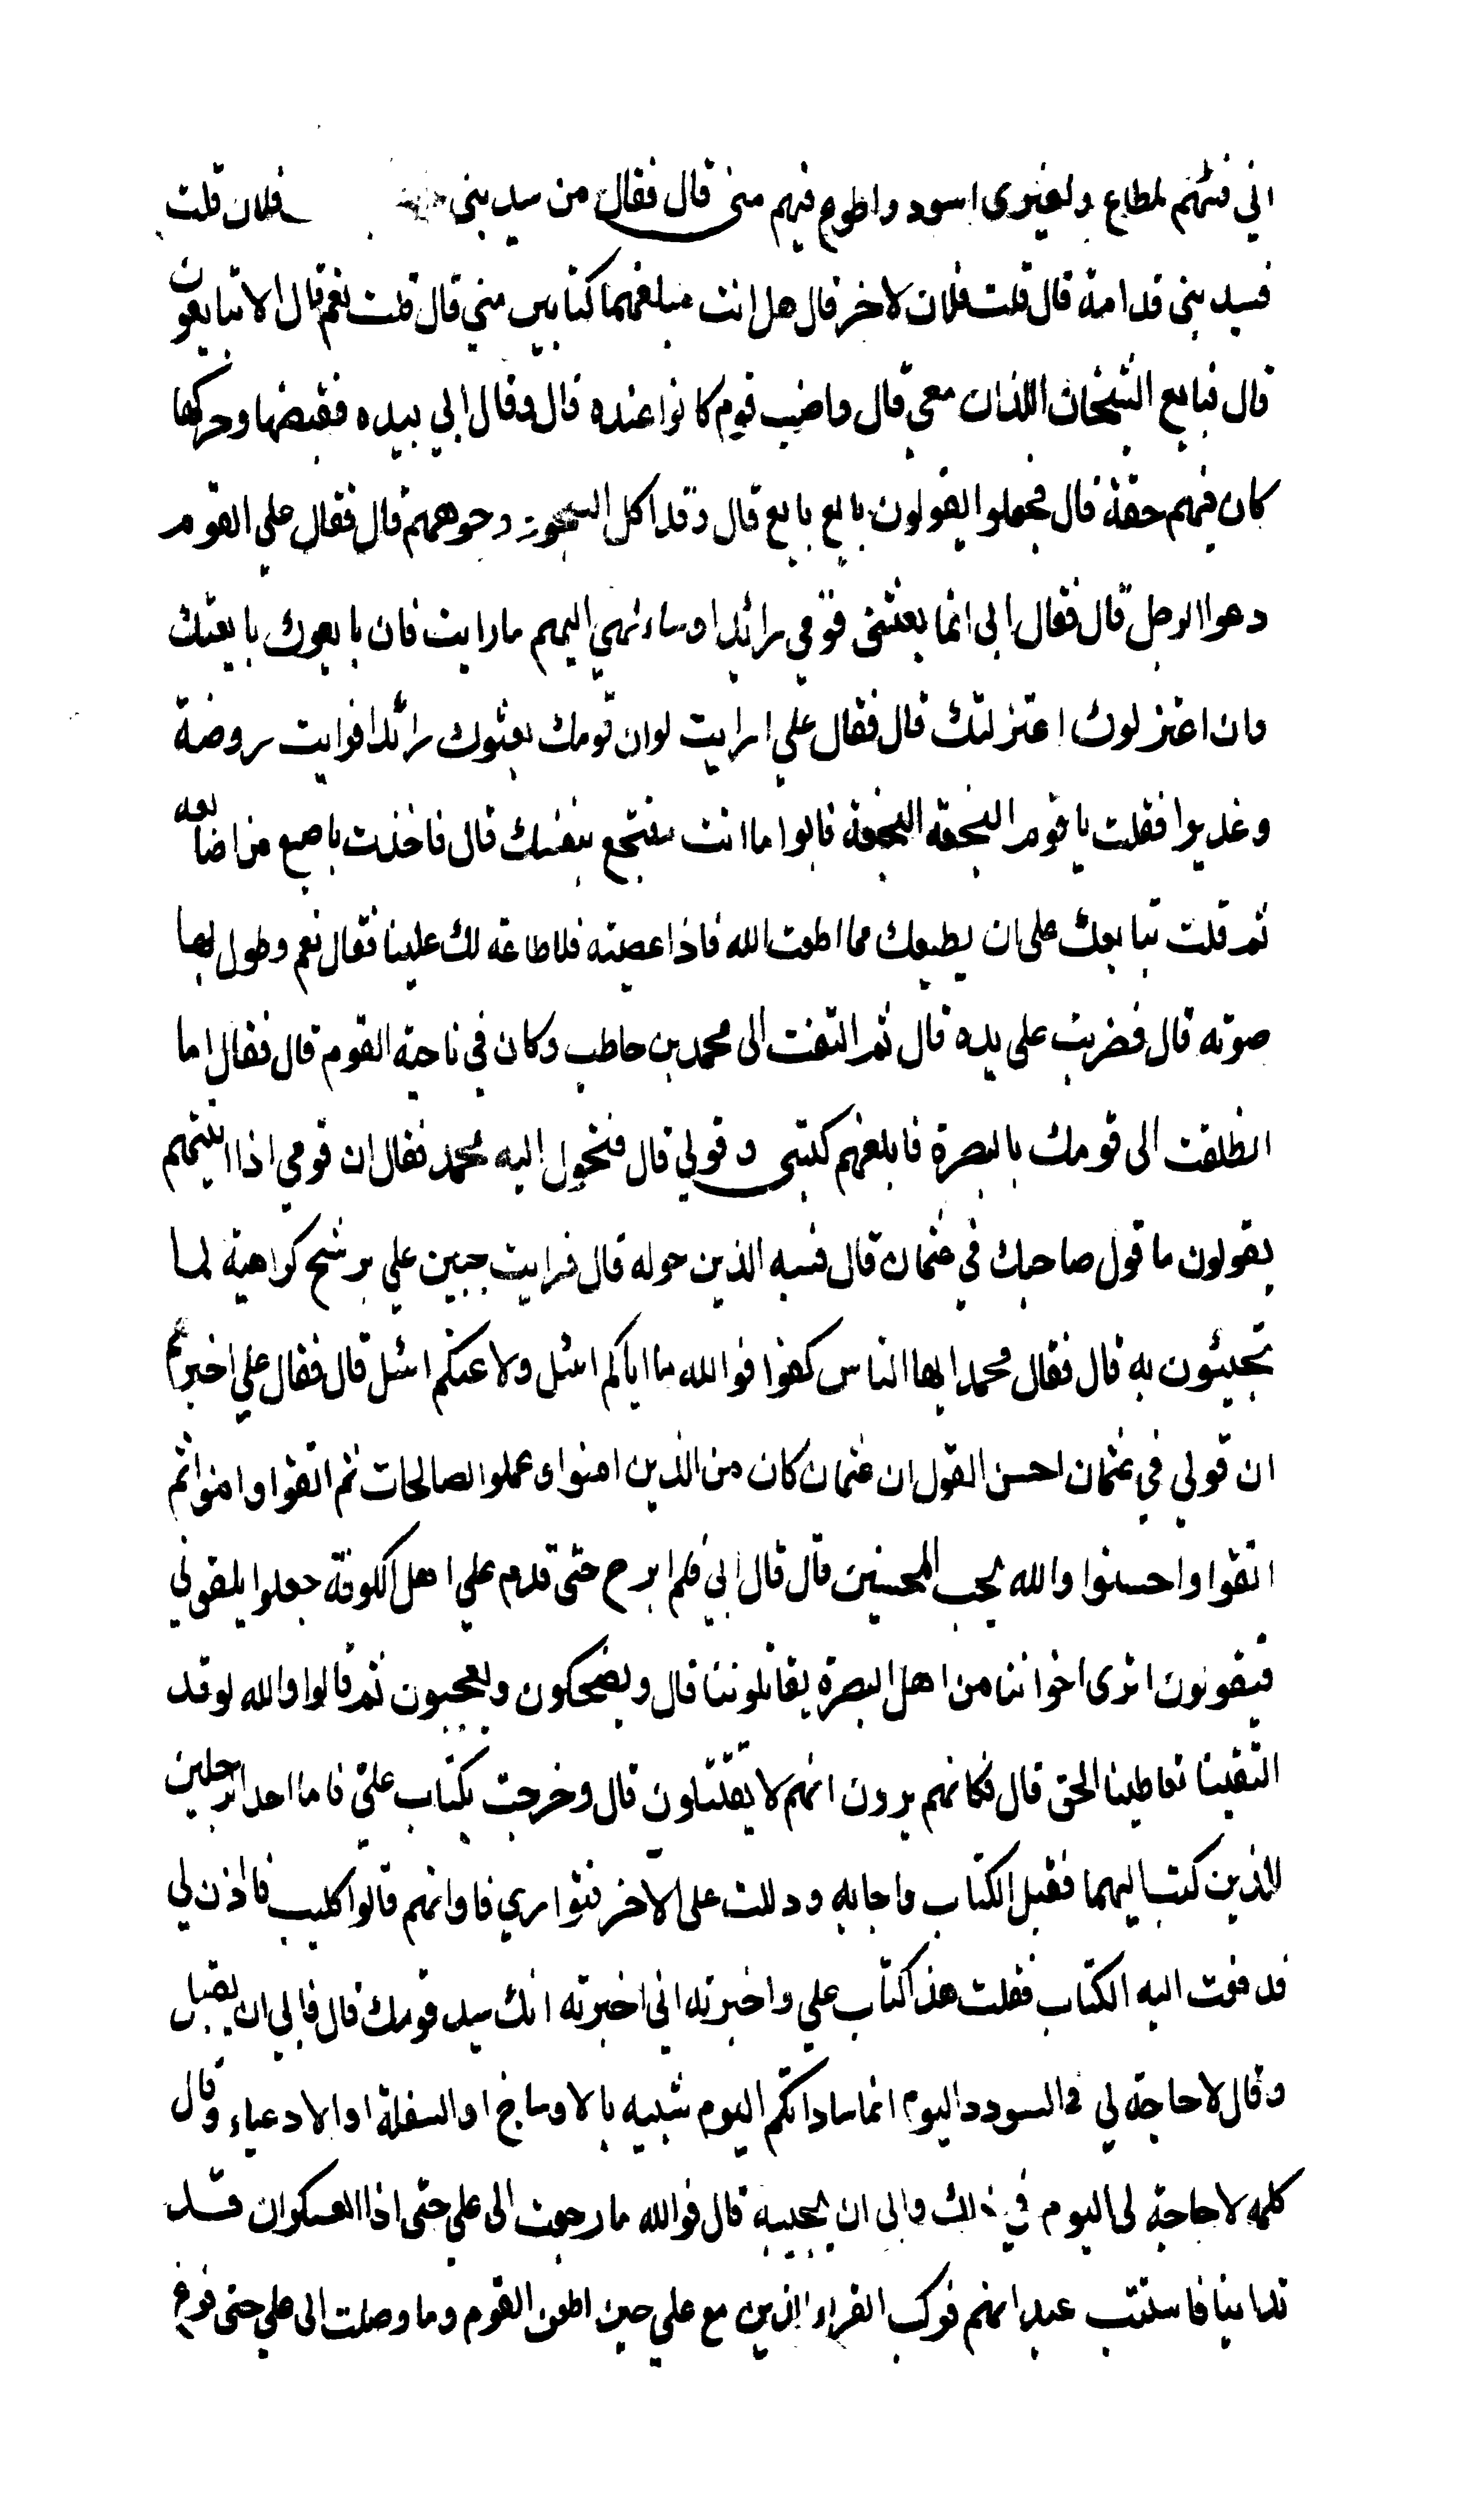 اني فيهم لمطاع ولغيرى اسود واطوع فيهم منى قال فقال من سيد بنى فلان قلت
فسيد بنى قدامة قال قلت فلان لاخر قال هل انت مبلغهما كتابين مني قال قلت نعم قال الا تبايعون
قال فبايع الشيخان اللذان معي قال واضب قوم كانوا عنده قال وقال ابي بيده فقبضها وحركها
كان فيهم حقة قال فجعلوا يقولون بايع بايع قال وقد اكل السجود وجوههم قال فقال علي القوم
دعوا الرجل قال فقال ابى انما بعثنى قومي رائدا وساء نهي اليهم ما رايت فان بايعوك بايعتك
وان اعتزلوك اعتزلتك قال فقال علي ارايت لو ان قومك بعثوك رائدا فرايت روضة
وغديرا فقلت يا قوم النجعة النجعة فابوا ما انت منتجع بنفسك قال فاخذت باصبع من اصابعه
ثم قلت نبايعك على ان نطيعك مما اطعت الله فاذا عصيته فلا طاعة لك علينا فقال نعم وطول بها
صوته قال فضربت على يده قال ثم التفت الى محمد بن حاطب وكان في ناحية القوم قال فقال اما
انطلقت الى قومك بالبصرة فابلغهم كتبى وقولي قال فتحول اليه محمد فقال ان قومي اذا اتيتهم
يقولون ما قول صاحبك في عثمان قال فسبه الذين حوله قال فرايت جبين علي يرشح كراهية لما
تجيئون به قال فقال محمد ايها الناس كفوا فوالله ما اياكم اسئل ولا عنكم اسئل قال فقال علي اخبرهم
ان قولي في عثمان احسن القول ان عثمان كان من الذين امنوا وعملوا الصالحات ثم اتقوا وامنوا ثم
اتقوا واحسنوا والله يحب المحسنين قال قال ابي فلم ابرح حتى قدم علي اهل الكوفة جعلوا يلقوني
فيقولون اترى اخواننا من اهل البصرة يقاتلوننا قال ويضحكون ويعجبون ثم قالوا والله لو قد
التقينا تعاطينا الحق قال فكانهم يرون انهم لا يقتتلون قال وخرجت بكتاب علي فاما احد الرجلين
للذين كتب اليهما فقبل الكتاب واجابه ودللت على الاخر فتوارى فاوانهم قالوا كليب فاذن لي
فدفعت اليه الكتاب فقلت هذا كتاب علي واخبرته اني اخبرته انك سيد قومك قال فابى ان يقبل
وقال لا حاجة لي في السودد اليوم انما ساداتكم اليوم شبيه بالاوساخ او السفلة او الادعياء وقال
كلمه لا حاجة لى اليوم في ذلك وابى ان يجيبه قال فوالله ما رجعت الى علي حتى اذا العسكران قد
تدانينا فاستتب عبدانهم فركب القراء الذين مع علي حين اطعن القوم وما وصلت الى علي حتى فرغ